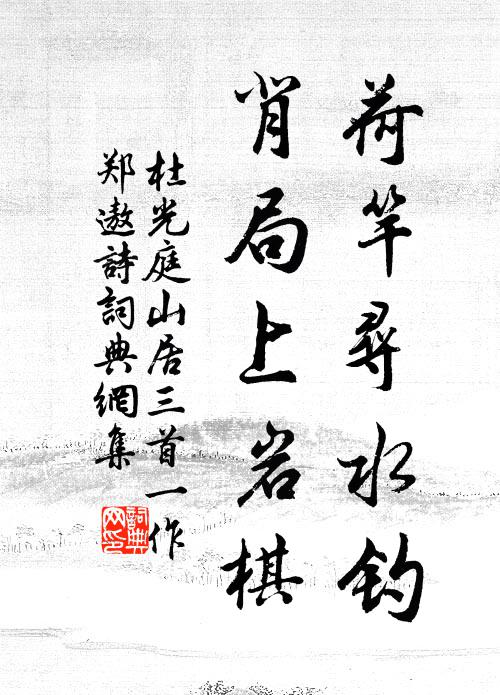 荷竿尋水钓
背局上岩棋
杜光庭山居三首一作
郑遨詩詞典網集
詞典網